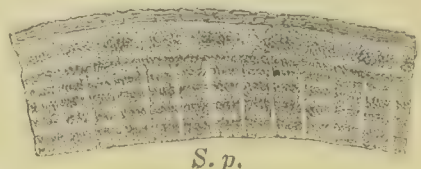 S. p.